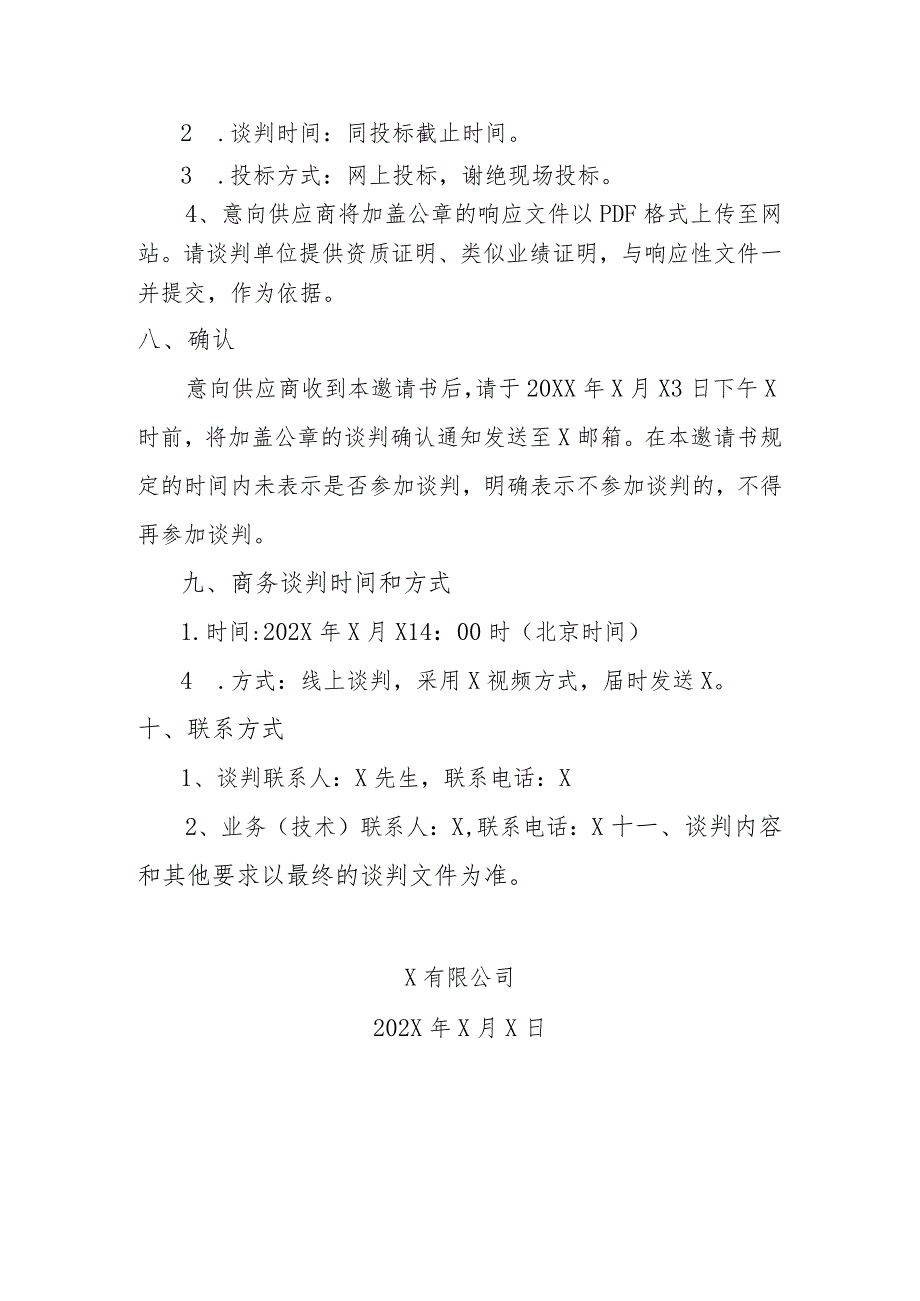 2 .谈判时间：同投标截止时间。
3 .投标方式：网上投标，谢绝现场投标。
4、意向供应商将加盖公章的响应文件以 PDF 格式上传至网
站。请谈判单位提供资质证明、类似业绩证明，与响应性文件一
并提交，作为依据。
八、确认
意向供应商收到本邀请书后,请于 20XX 年 X 月 X3 日下午 X
时前，将加盖公章的谈判确认通知发送至 X 邮箱。在本邀请书规
定的时间内未表示是否参加谈判，明确表示不参加谈判的，不得
再参加谈判。
九、商务谈判时间和方式
1.时间:202X 年 X 月 X14：00 时（北京时间）
4 .方式：线上谈判，采用 X 视频方式，届时发送 X。
十、联系方式
1、谈判联系人：X 先生，联系电话：X
2、业务（技术）联系人：X,联系电话：X 十一、谈判内容
和其他要求以最终的谈判文件为准。
X 有限公司
202X 年 X 月 X 日